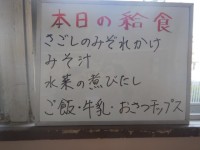 本日の給食
さごしのみぞれかけ
みそ汁
水菜の煮びたし
ご飯・牛乳・おさつチップス